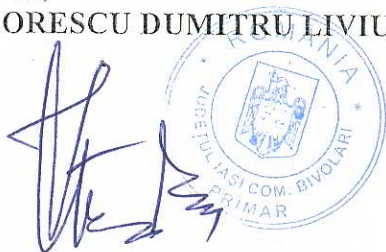 ORESCU DUMITRU LIVIU
* ROMÂNIA *
JUDEŢUL IAŞI COM. BIVOLARI
PRIMAR